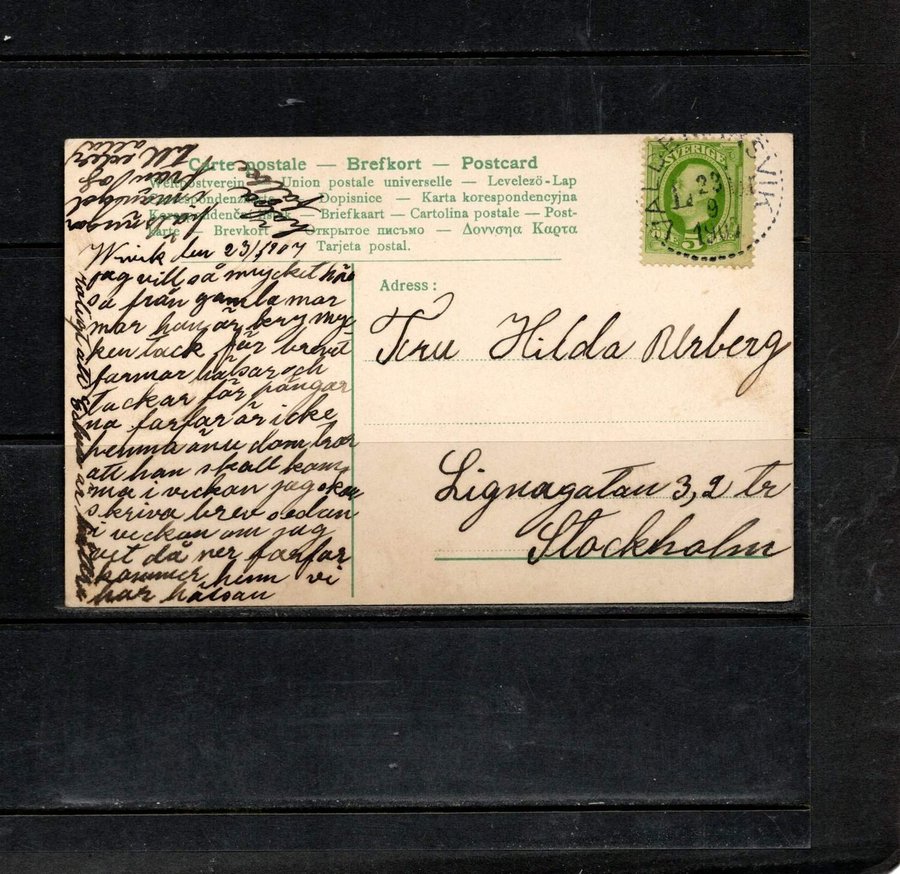 Carte postale — Brefkort — Postcard
Weltpostverein — Union postale universelle — Levelező-Lap
Correspondenzkarte — Dopisnice — Karta korespondencyjna
Korespondenční lístek — Briefkaart — Cartolina postale — Post-
karte — Brevkort — Открытое письмо — Δοννσηα Καρτα
Tarjeta postal.
SVERIGE
23
9
190
5
Adress:
Fru Hilda
Lignagatan 3, 2 tr
Stockholm
den 23/9 1907
jag vill så mycket häl
sa från gamla mor
mor han är kry myc
ken tack för brevet
farmor hälsar och
tackar för pängar
na farfar är icke
hemma änu dom tror
att han skall kom
ma i veckan jag skal
skriva brev sedan
i veckan om jag
vet då när farfar
kommer hem vi
har hälsan
hälsningar
från
till eder
alla